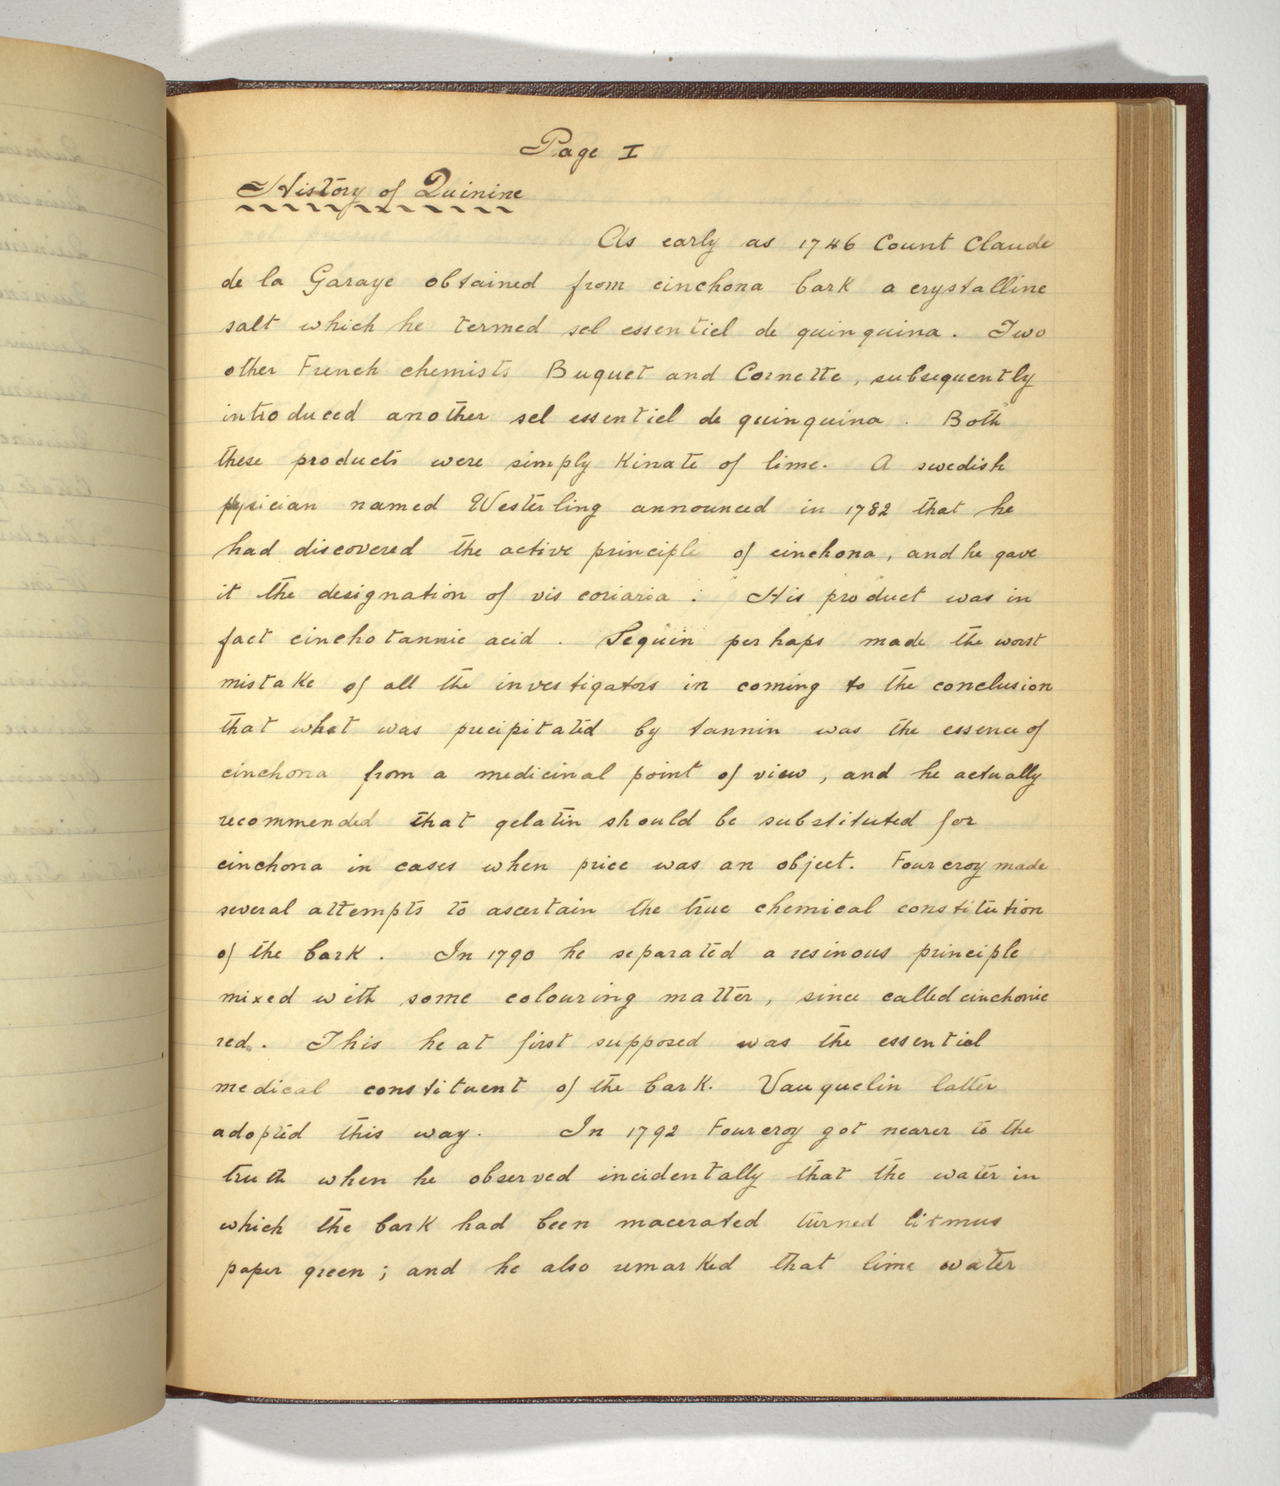 Page I
History of Quinine
As early as 1746 Count Claude
de la Garaye obtained from cinchona bark a crystalline
salt which he termed sel essentiel de quinquina. Two
other French chemists Buquet and Cornette, subsequently
introduced another sel essentiel de quinquina. Both
these products were simply Kinate of lime. A swedish
pysician named Westerling announced in 1782 that he
had discovered the active principle of cinchona, and he gave
it the designation of vis coriaria. His product was in
fact cinchotannic acid. Seguin perhaps made the worst
mistake of all the investigators in coming to the conclusion
that what was precipitated by tannin was the essence of
cinchona from a medicinal point of view, and he actually
recommended that gelatin should be substituted for
cinchona in cases when price was an object. Fourcroy made
several attempts to ascertain the true chemical constitution
of the bark. In 1790 he separated a resinous principle
mixed with some colouring matter, since called cinchonic
red. This he at first supposed was the essential
medical constituent of the bark. Vauquelin latter
adopted this way. In 1792 Fourcroy got nearer to the
truth when he observed incidentally that the water in
which the bark had been macerated turned litmus
paper green; and he also remarked that lime water